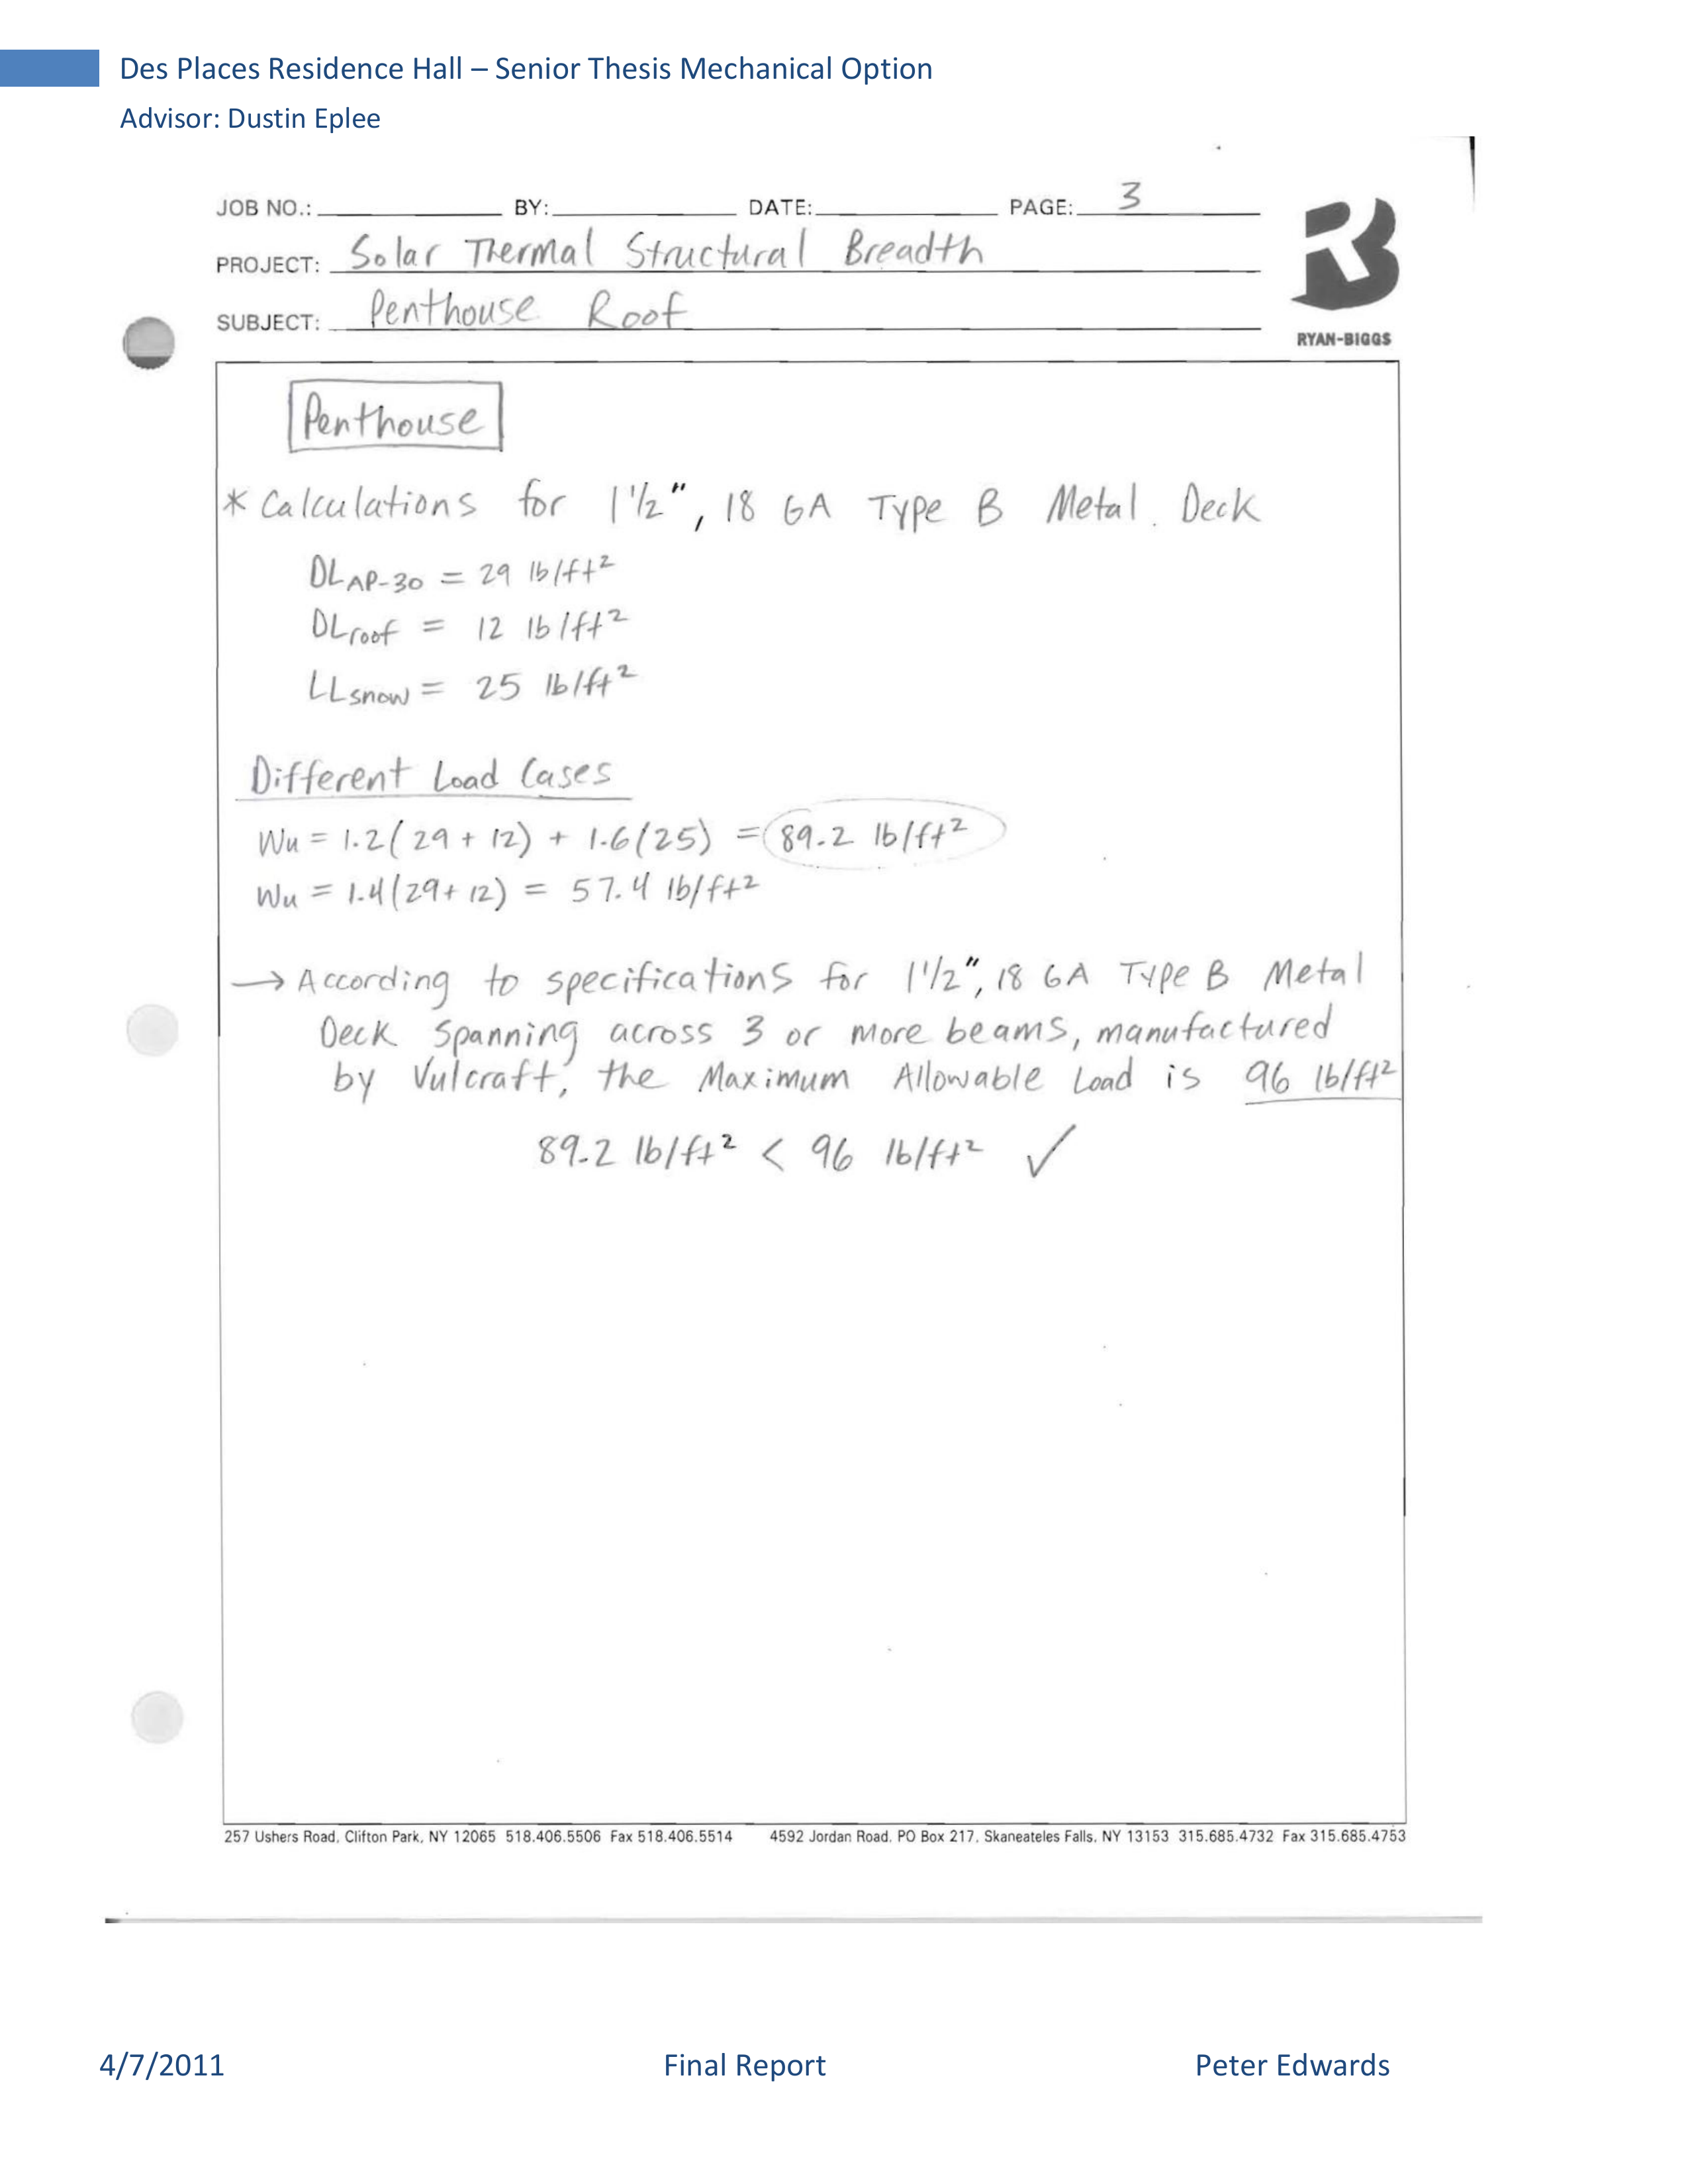 Des Places Residence Hall – Senior Thesis Mechanical Option
Advisor: Dustin Eplee
JOB NO.: BY: DATE: PAGE: 3
PROJECT: Solar Thermal Structural Breadth
SUBJECT: Penthouse Roof
RYAN-BIGGS
Penthouse
* Calculations for 1 1/2", 18 GA Type B Metal Deck
DL AP-30 = 29 lb/ft²
DL roof = 12 lb/ft²
LL snow = 25 lb/ft²
Different Load Cases
Wu = 1.2(29 + 12) + 1.6(25) = 89.2 lb/ft²
Wu = 1.4(29 + 12) = 57.4 lb/ft²
→ According to specifications for 1 1/2", 18 GA Type B Metal
Deck spanning across 3 or more beams, manufactured
by Vulcraft, the Maximum Allowable Load is 96 lb/ft²
89.2 lb/ft² < 96 lb/ft² ✓
257 Ushers Road, Clifton Park, NY 12065 518.406.5506 Fax 518.406.5514 4592 Jordan Road, PO Box 217, Skaneateles Falls, NY 13153 315.685.4732 Fax 315.685.4753
4/7/2011 Final Report Peter Edwards